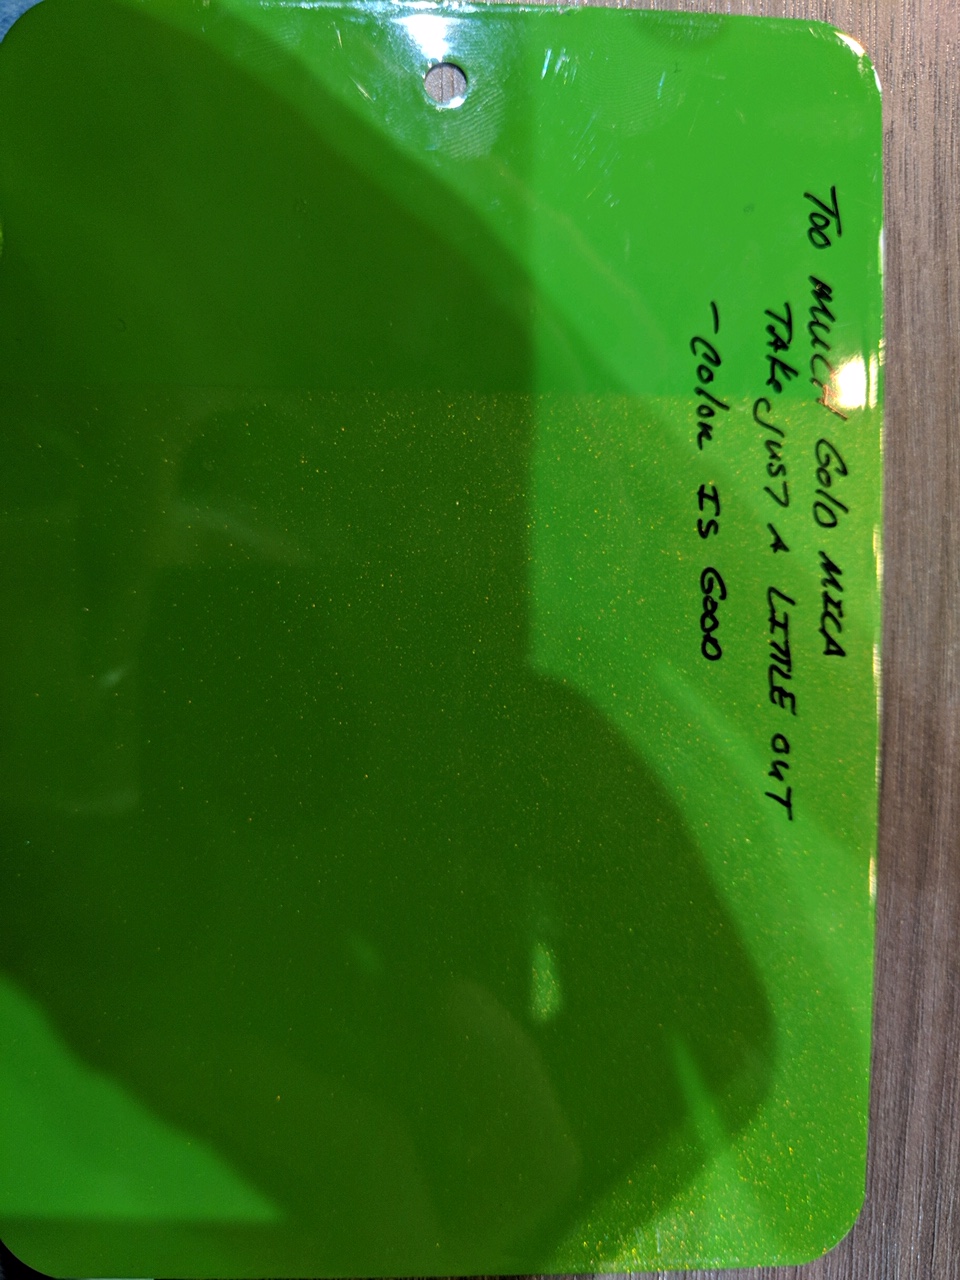 Too MUCH Gold MICA
TAke JUST A LITTLE OUT
- Color IS GOOD